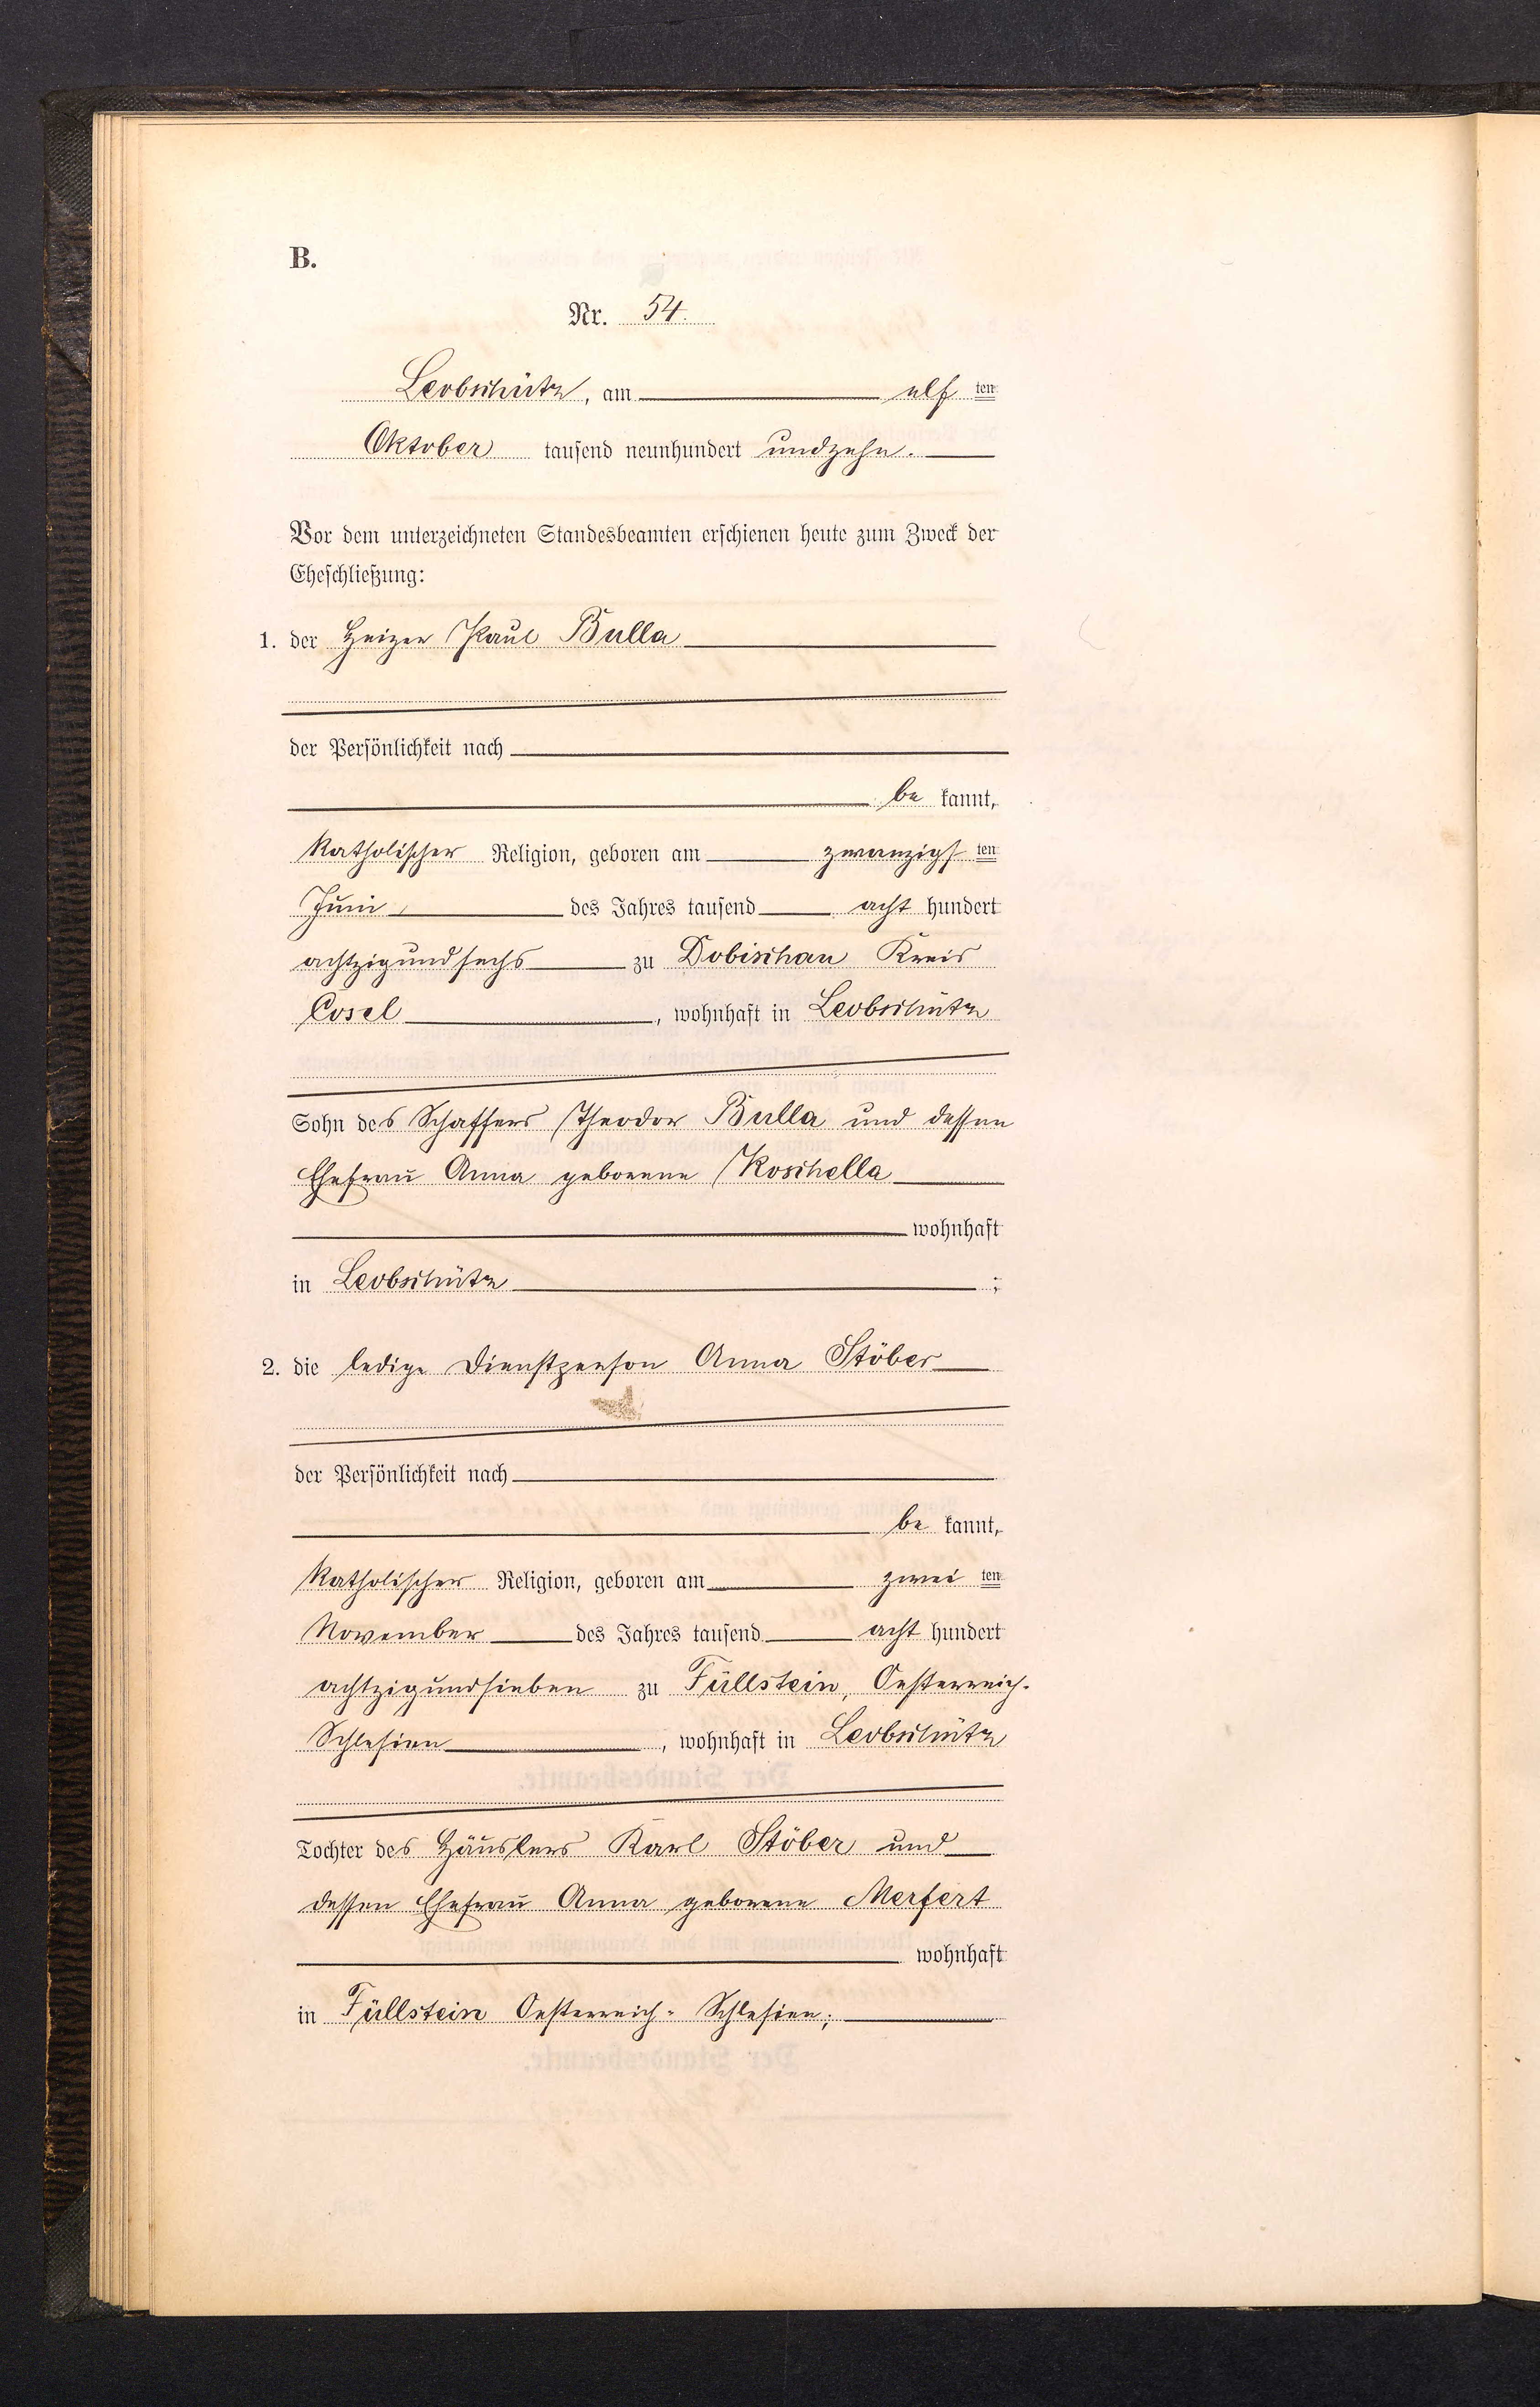 B.
Nr. 54.
Leobschütz, am elf ten
Oktober tausend neunhundert undzehn.
Vor dem unterzeichneten Standesbeamten erschienen heute zum Zweck der
Eheschließung:
1. der Heizer Paul Bulla
der Persönlichkeit nach
be kannt,
katholischer Religion, geboren am zwanzigs ten
Juni des Jahres tausend acht hundert
achtzigundsechs zu Dobischau Kreis
Cosel, wohnhaft in Leobschütz
Sohn des Schaffers Theodor Bulla und dessen
Ehefrau Anna geborene Koschella
wohnhaft
in Leobschütz ;
2. die ledige Dienstperson Anna Stöber
der Persönlichkeit nach
be kannt,
katholischer Religion, geboren am zwei ten
November des Jahres tausend acht hundert
achtzigundsieben zu Füllstein, Oesterreich-
Schlesien, wohnhaft in Leobschütz
Tochter des Häuslers Karl Stöber und
dessen Ehefrau Anna geborene Merfert
wohnhaft
in Füllstein Oesterreich-Schlesien;